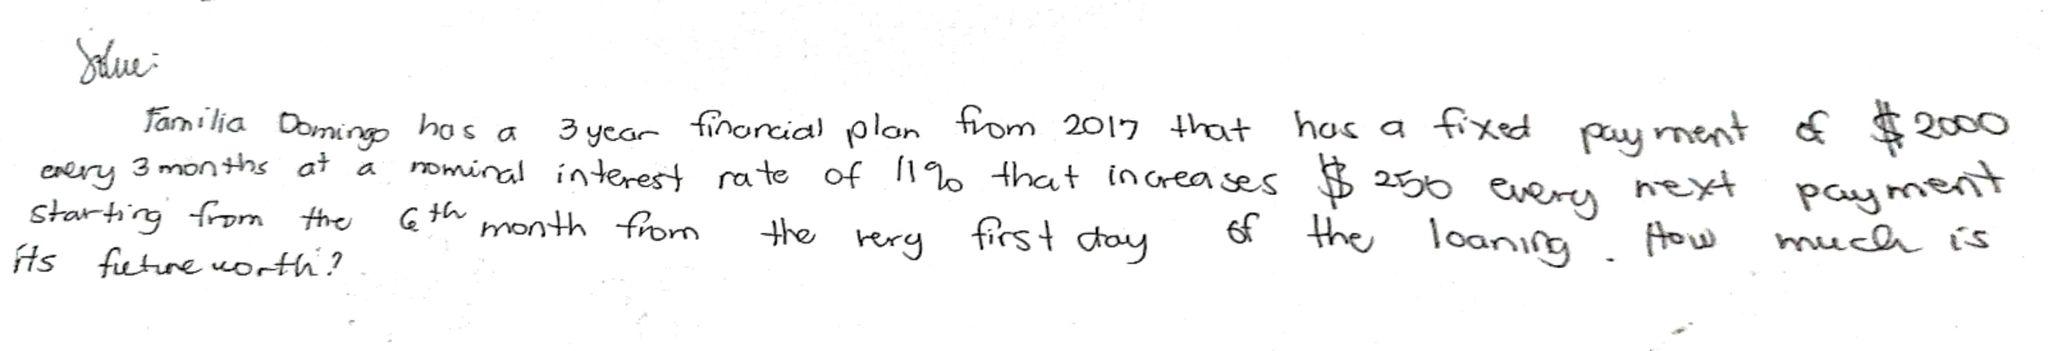 Solve:
Familia Domingo has a 3 year financial plan from 2017 that has a fixed payment of $2000
every 3 months at a nominal interest rate of 11% that increases $250 every next payment
starting from the 6th month from the very first day of the loaning. How much is
its future worth?